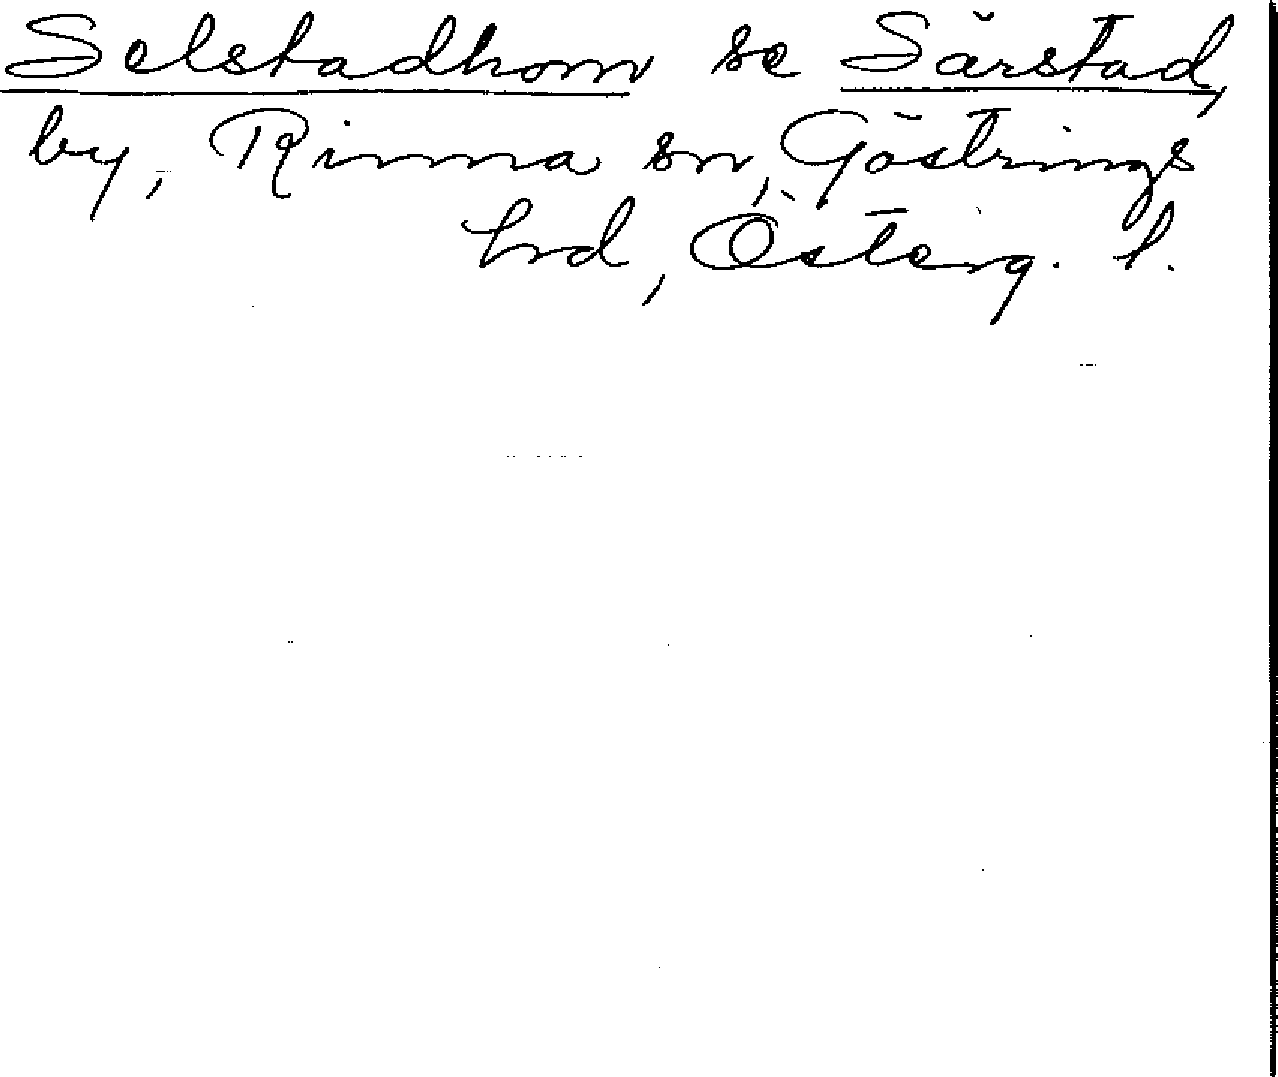 Selstadhom se Särstad,
by, Rinna sn, Göstrings
hd, Österg. l.